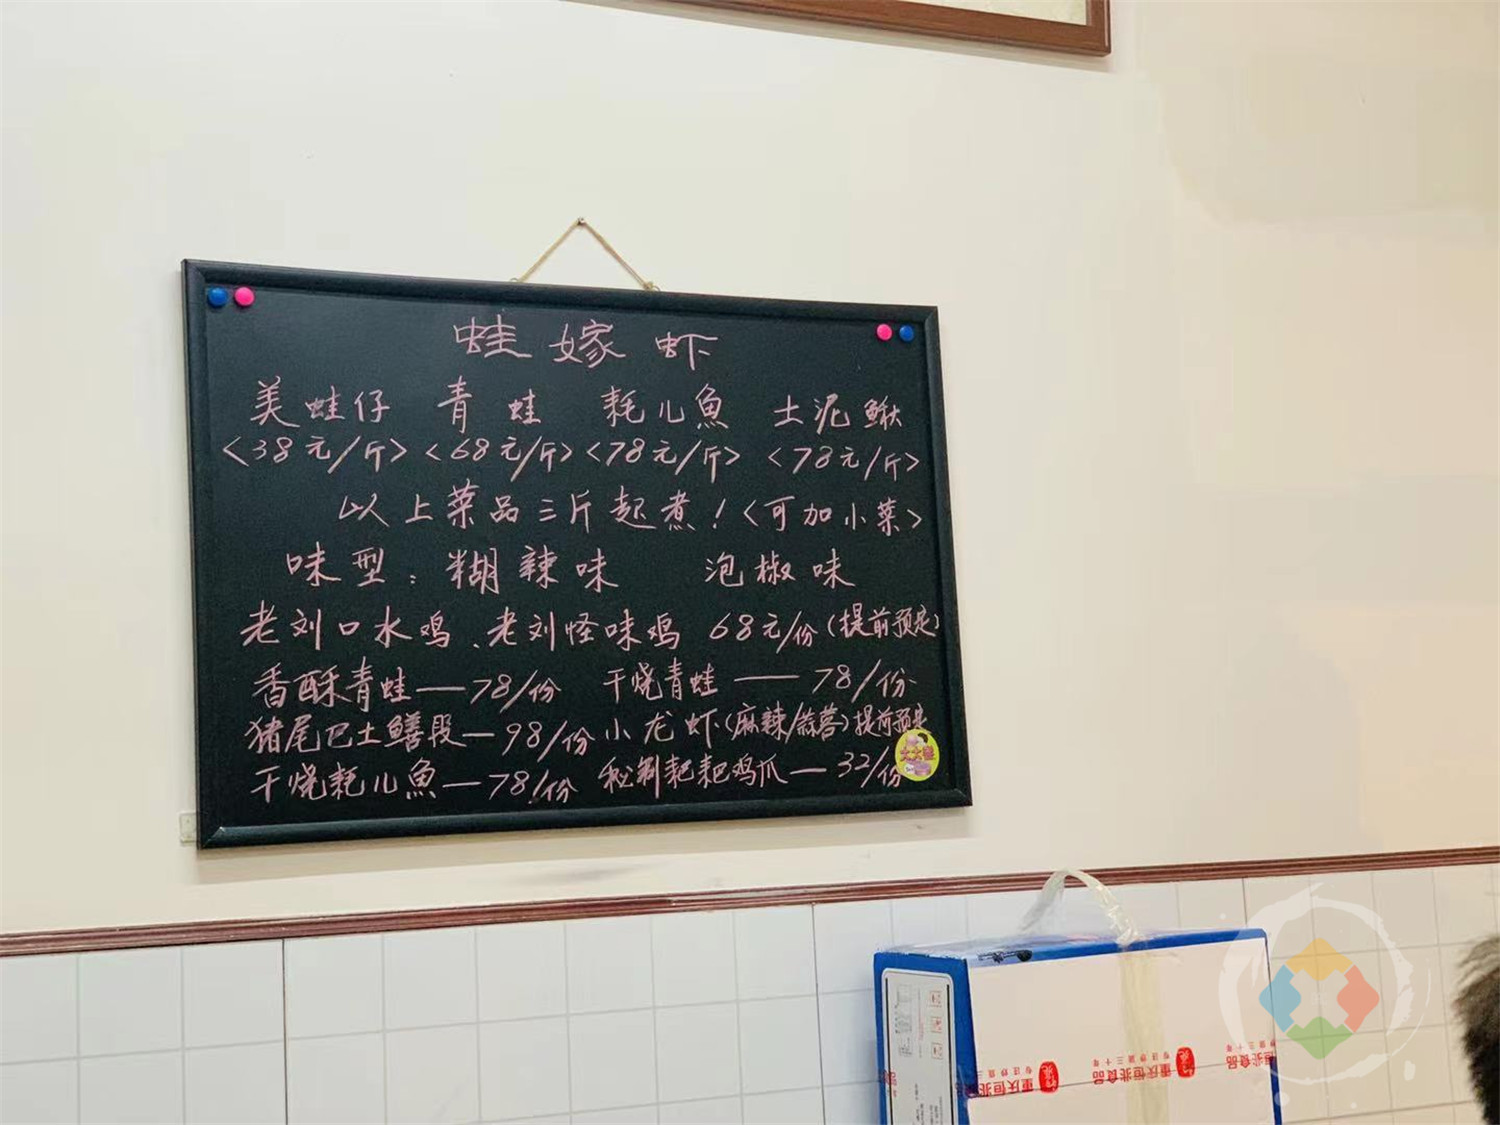 蛙嫁虾
美蛙仔 青蛙 耗儿魚 土泥鳅
<38元/斤> <68元/斤> <78元/斤> <78元/斤>
以上菜品三斤起煮！<可加小菜>
味型：糊辣味 泡椒味
老刘口水鸡、老刘怪味鸡 68元/份(提前预定)
香酥青蛙—78/份 干烧青蛙——78/份
猪尾巴土鳝段—98/份 小龙虾(麻辣/蒜蓉)提前预定
干烧耗儿魚—78/份 秘制耙耙鸡爪—32/份
重庆恒兆食品